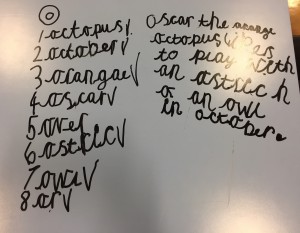 O
1.octopus✓
2.october✓
3 orangae✓
4 oscar✓
6 ostric✓
7 owl✓
8 or✓
Oscar the orange
octopus likes
to play with
an ostric h
or an owl
in october.